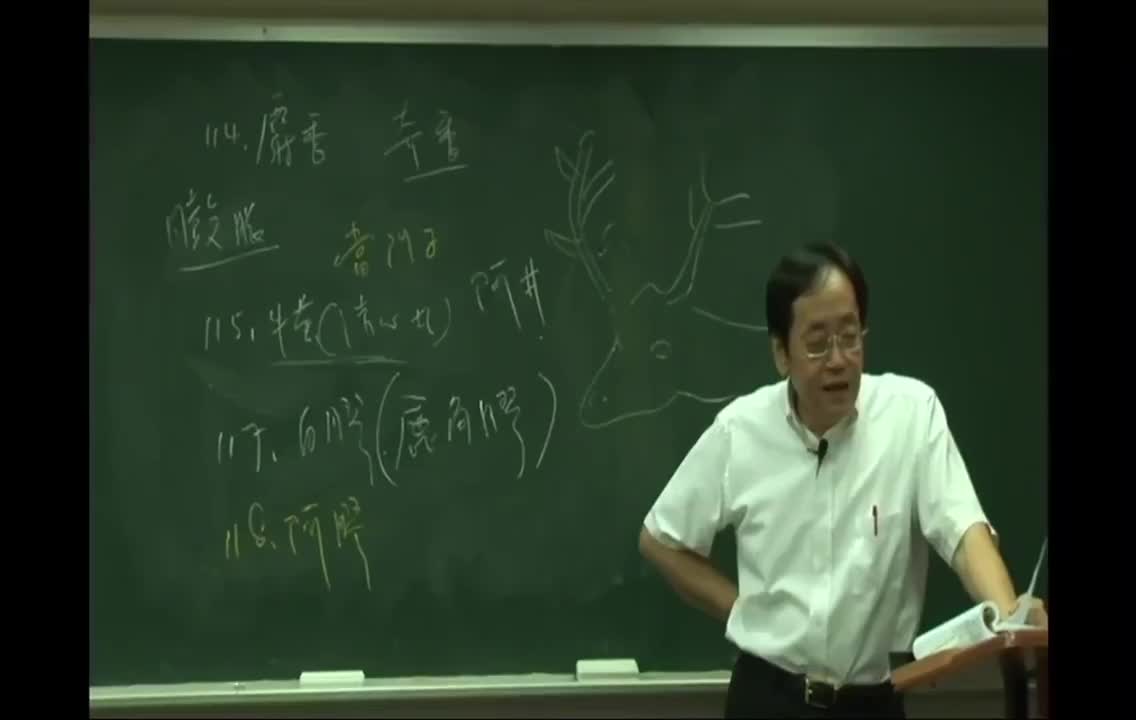 114. 麝香 奇香
膻
當門子
115. 牛黃(清心丸) 阿井
117. 白膠(鹿角膠)
118. 阿膠